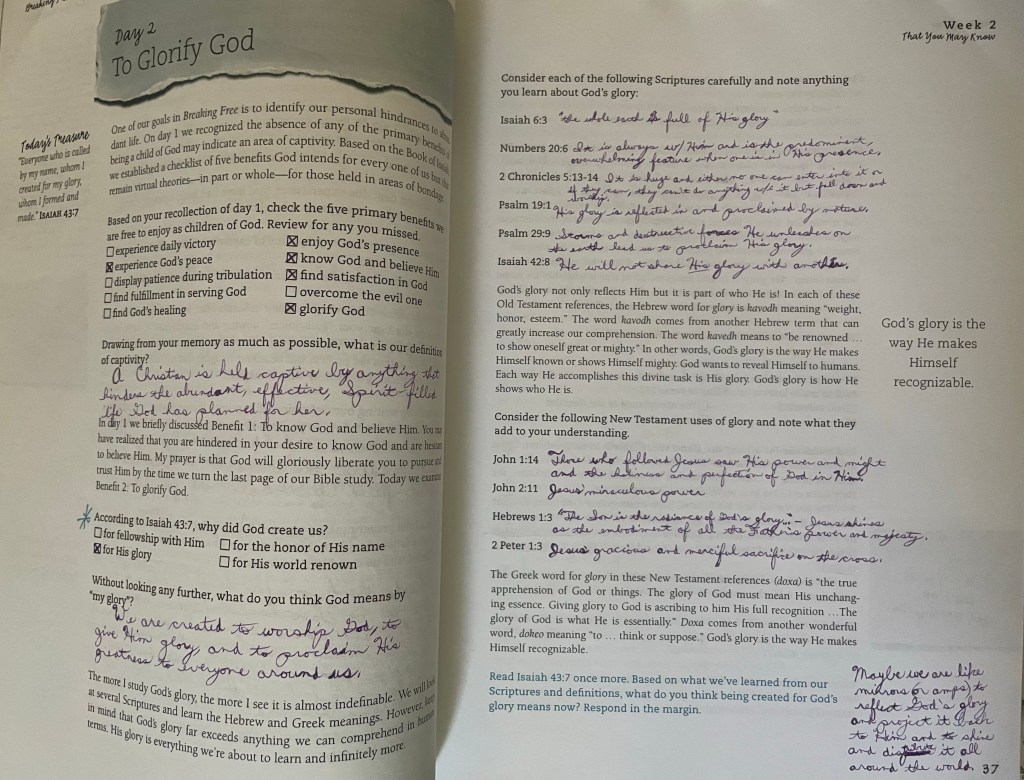 Breaking F
Day 2
To Glorify God
Today's Treasure
"Everyone who is called
by my name, whom I
created for my glory,
whom I formed and
made." ISAIAH 43:7
One of our goals in Breaking Free is to identify our personal hindrances to
dant life. On day 1 we recognized the absence of any of the primary benefits
being a child of God may indicate an area of captivity. Based on the Book of
we established a checklist of five benefits God intends for every one of us but
remain virtual theories—in part or whole—for those held in areas of bondage.
Based on your recollection of day 1, check the five primary benefits we
are free to enjoy as children of God. Review for any you missed.
☐ experience daily victory
☒ experience God's peace
☐ display patience during tribulation
☐ find fulfillment in serving God
☐ find God's healing
☒ enjoy God's presence
☒ know God and believe Him
☒ find satisfaction in God
☐ overcome the evil one
☒ glorify God
Drawing from your memory as much as possible, what is our definition
of captivity?
A Christian is held captive by anything that
hinders the abundant, effective, Spirit-filled
life God has planned for her.
In day 1 we briefly discussed Benefit 1: To know God and believe Him. You may
have realized that you are hindered in your desire to know God and are
to believe Him. My prayer is that God will gloriously liberate you to pursue and
trust Him by the time we turn the last page of our Bible study. Today we
Benefit 2: To glorify God.
According to Isaiah 43:7, why did God create us?
☐ for fellowship with Him
☒ for His glory
☐ for the honor of His name
☐ for His world renown
Without looking any further, what do you think God means by
"my glory"?
We are created to worship God, to
give Him glory, and to proclaim His
greatness to everyone around us.
The more I study God's glory, the more I see it is almost indefinable. We will look
at several Scriptures and learn the Hebrew and Greek meanings. However, keep
in mind that God's glory far exceeds anything we can comprehend in human
terms. His glory is everything we're about to learn and infinitely more.
Week 2
That You May Know
Consider each of the following Scriptures carefully and note anything
you learn about God's glory:
Isaiah 6:3 "the whole earth is full of His glory"
Numbers 20:6 It is always w/ Him and is the predominent,
overwhelming feature when one is in His presence.
2 Chronicles 5:13-14 It is huge and either no one can enter into it or
if they can, they can't do anything w/ it but fall down and
worship.
Psalm 19:1 His glory is reflected in and proclaimed by nature.
Psalm 29:9 Storms and destructive forces He unleashes on
the earth lead us to proclaim His glory.
Isaiah 42:8 He will not share His glory with another.
God's glory not only reflects Him but it is part of who He is! In each of these
Old Testament references, the Hebrew word for glory is kavodh meaning "weight,
honor, esteem." The word kavodh comes from another Hebrew term that can
greatly increase our comprehension. The word kavedh means to "be renowned ...
to show oneself great or mighty." In other words, God's glory is the way He makes
Himself known or shows Himself mighty. God wants to reveal Himself to humans.
Each way He accomplishes this divine task is His glory. God's glory is how He
shows who He is.
God's glory is the
way He makes
Himself
recognizable.
Consider the following New Testament uses of glory and note what they
add to your understanding.
John 1:14 Those who followed Jesus saw His power and might
and the holiness and perfection of God in Him.
John 2:11 Jesus' miraculous power
Hebrews 1:3 "The Son is the radiance of God's glory." - Jesus shines
as the embodiment of all the Father's power and majesty.
2 Peter 1:3 Jesus' gracious and merciful sacrifice on the cross.
The Greek word for glory in these New Testament references (doxa) is "the true
apprehension of God or things. The glory of God must mean His unchang-
ing essence. Giving glory to God is ascribing to him His full recognition ...The
glory of God is what He is essentially." Doxa comes from another wonderful
word, dokeo meaning "to ... think or suppose." God's glory is the way He makes
Himself recognizable.
Read Isaiah 43:7 once more. Based on what we've learned from our
Scriptures and definitions, what do you think being created for God's
glory means now? Respond in the margin.
Maybe we are like
mirrors (or amps) to
reflect God's glory
and project it back
to Him and to shine
and it all
around the world.
37